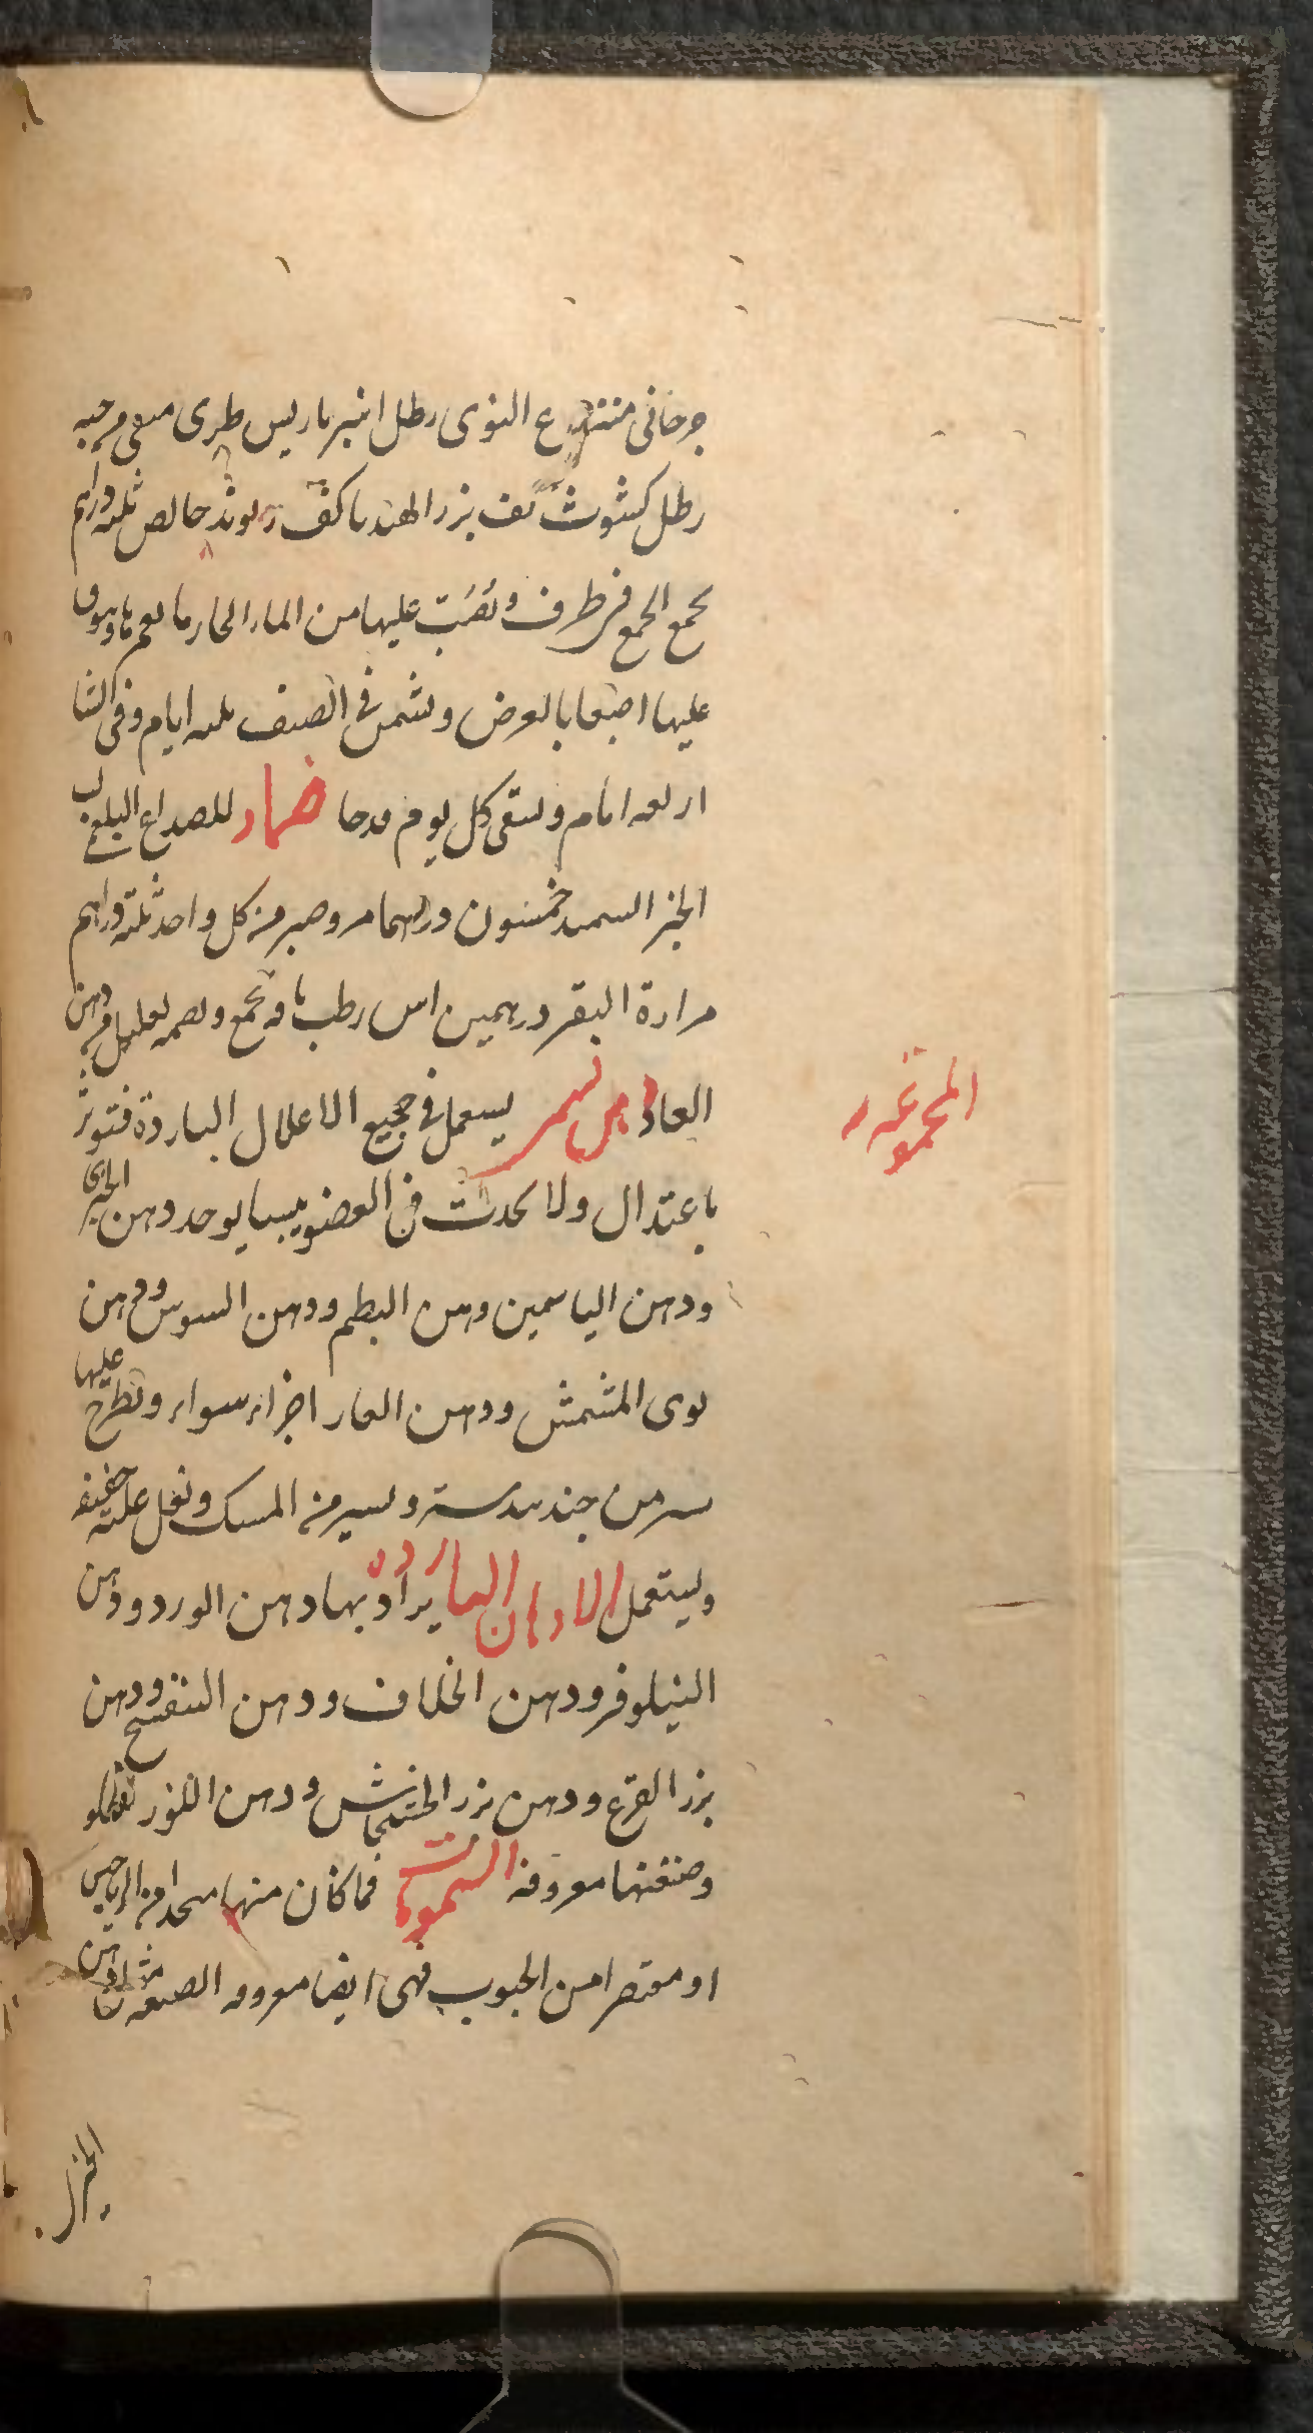 جرجانى منتزع النوى رطل انبرباريس طرى منقى من حبه
رطل كشوث كف بزر الهندبا كف ريوند خالص ثلثه دراهم
يجمع الجمع فى ظرف وتصب عليها من الماء الحار ما يعمها ويعوق
عليها اصبعا بالعرض ويشمس فى الصيف ثلثه ايام وفى الشتا
اربعه ايام ويسقى كل يوم قدحا ضماد للصداع البلغمى لب
الخبز السميد خمسون درهما مر وصبر من كل واحد ثلثة دراهم
مرارة البقر درهمين اس رطب باقه يجمع ويضمد بقليل من دهن
الغار يستعمل فى جميع الاعلال الباردة فتوثر
باعتدال ولا يحدث فى العضو يبسا يوخد دهن الخيرى
ودهن الياسمين ودهن البطم ودهن السوسن ودهن
نوى المشمش ودهن الغار اجزاء سواء ويطرح عليها
يسير من جندبيدستر ويسير من المسك ويغلى غليه خفيفه
ويستعمل الادهان البارده يراد بها دهن الورد ودهن
النيلوفر ودهن الخلاف ودهن البنفسج ودهن
بزر القرع ودهن بزر الخشخاش ودهن اللوز
وصنعتها معروفه السموعات فما كان منها متخدا من الرياحين
او معتصرا من الحبوب فهى ايضا معروفه الصنعه